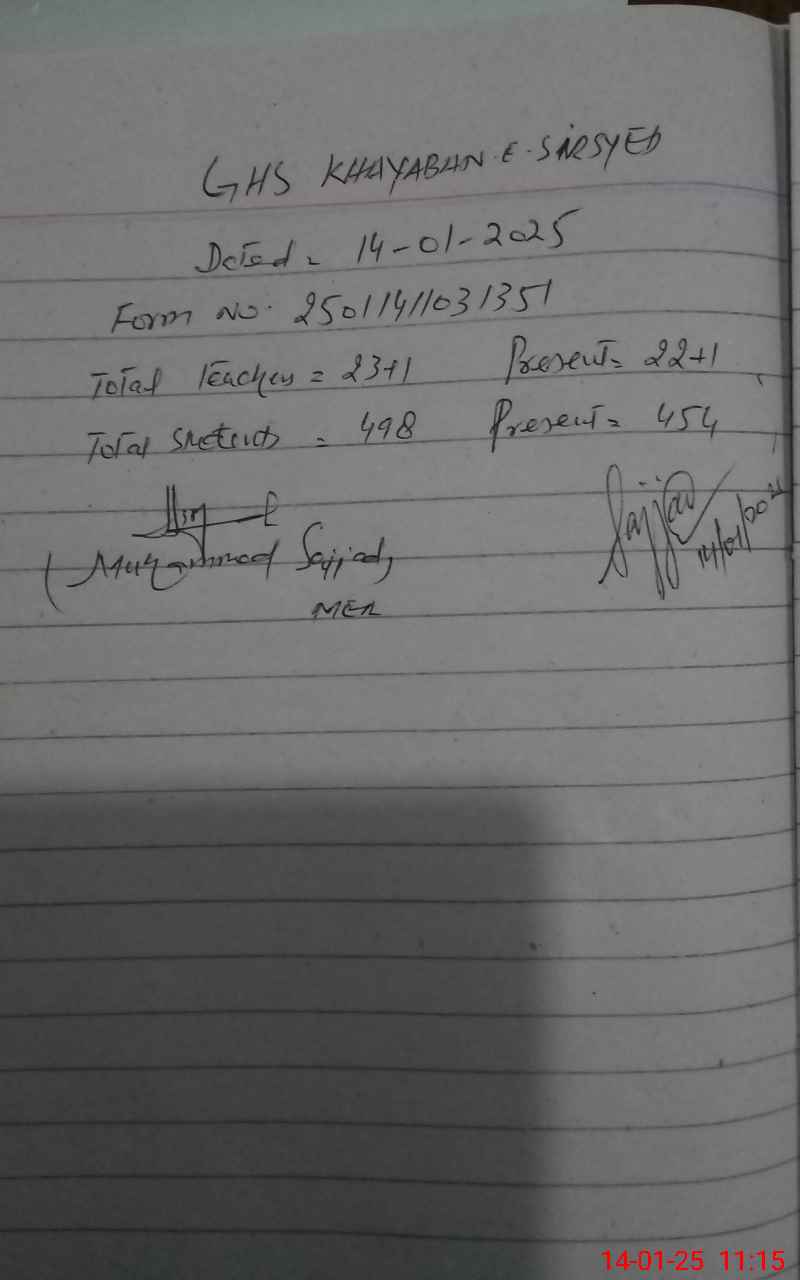 GHS KHAYABAN-E-SIRSYED
Dated = 14-01-2025
Form No. 25011411031351
Total Teachers = 23+1 Present = 22+1
Total Students = 498 Present = 454
(Muhammad Sajjad,
MEA
Sajjad
14/01/2025
14-01-25 11:15